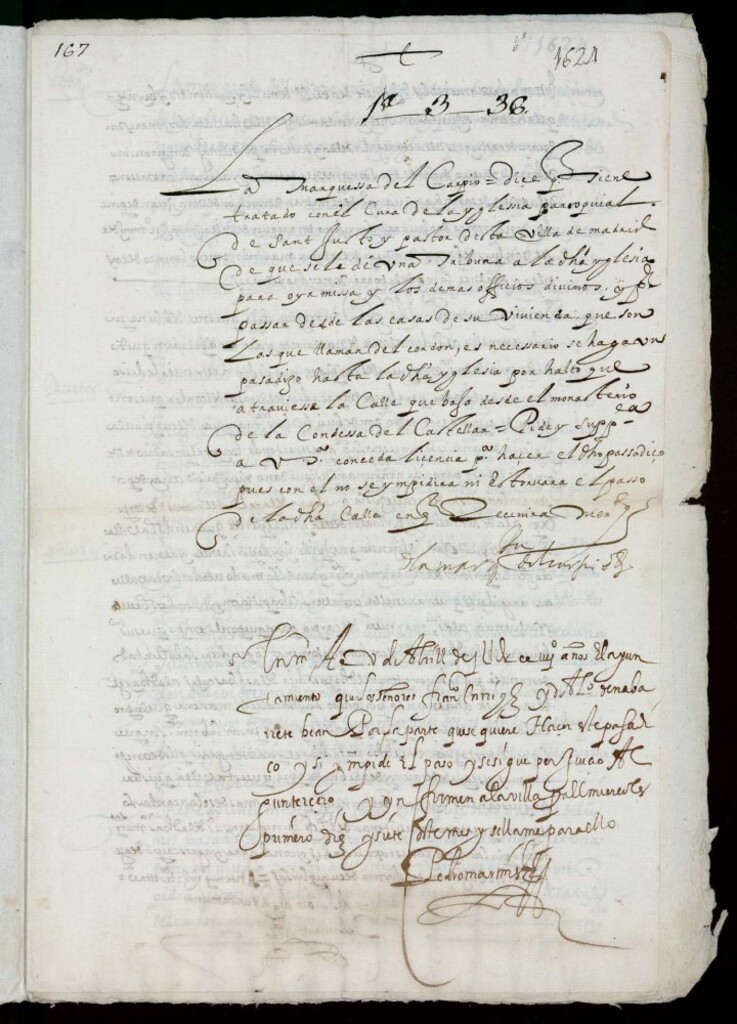 167
1624
1ª 3 - 38
La Marquessa del Carpio = dice q̃ tiene
tratado con el Cura de la yglesia parroquial
de Sant Justo y pastor desta Villa de madrid
de que se le dé vna Tribuna a la dhã yglesia
para oyr missa y los demas officios divinos, y pª
passar desde las casas de su Vivienda que son
las que llaman del cordon, es necessario se haga vn
pasadizo hasta la dhã yglesia por halto que
atraviesse la Calle que baja desde el monasterio
de la Condessa del Castellar = Pide y suppca
a V sª conceda licencia pª hacer el dho passadiço
pues con el no se ympidira ni estorvara el passo
de la dhã Calle en q̃ Recivira mer
la marqsa del carpio
En m A v de Abrill de años el ayun
tamiento que los señores franco Enrriqz y d Alº de naba
rrete bean Por la parte que se quiere Hacer este pasadi
ço y si ympide El paso y se sigue perjuicio Al
pun tercero y ynformen a la villa pª El miercoles
primero diez y siete deste mes y se llame para ello
Pedro martinez